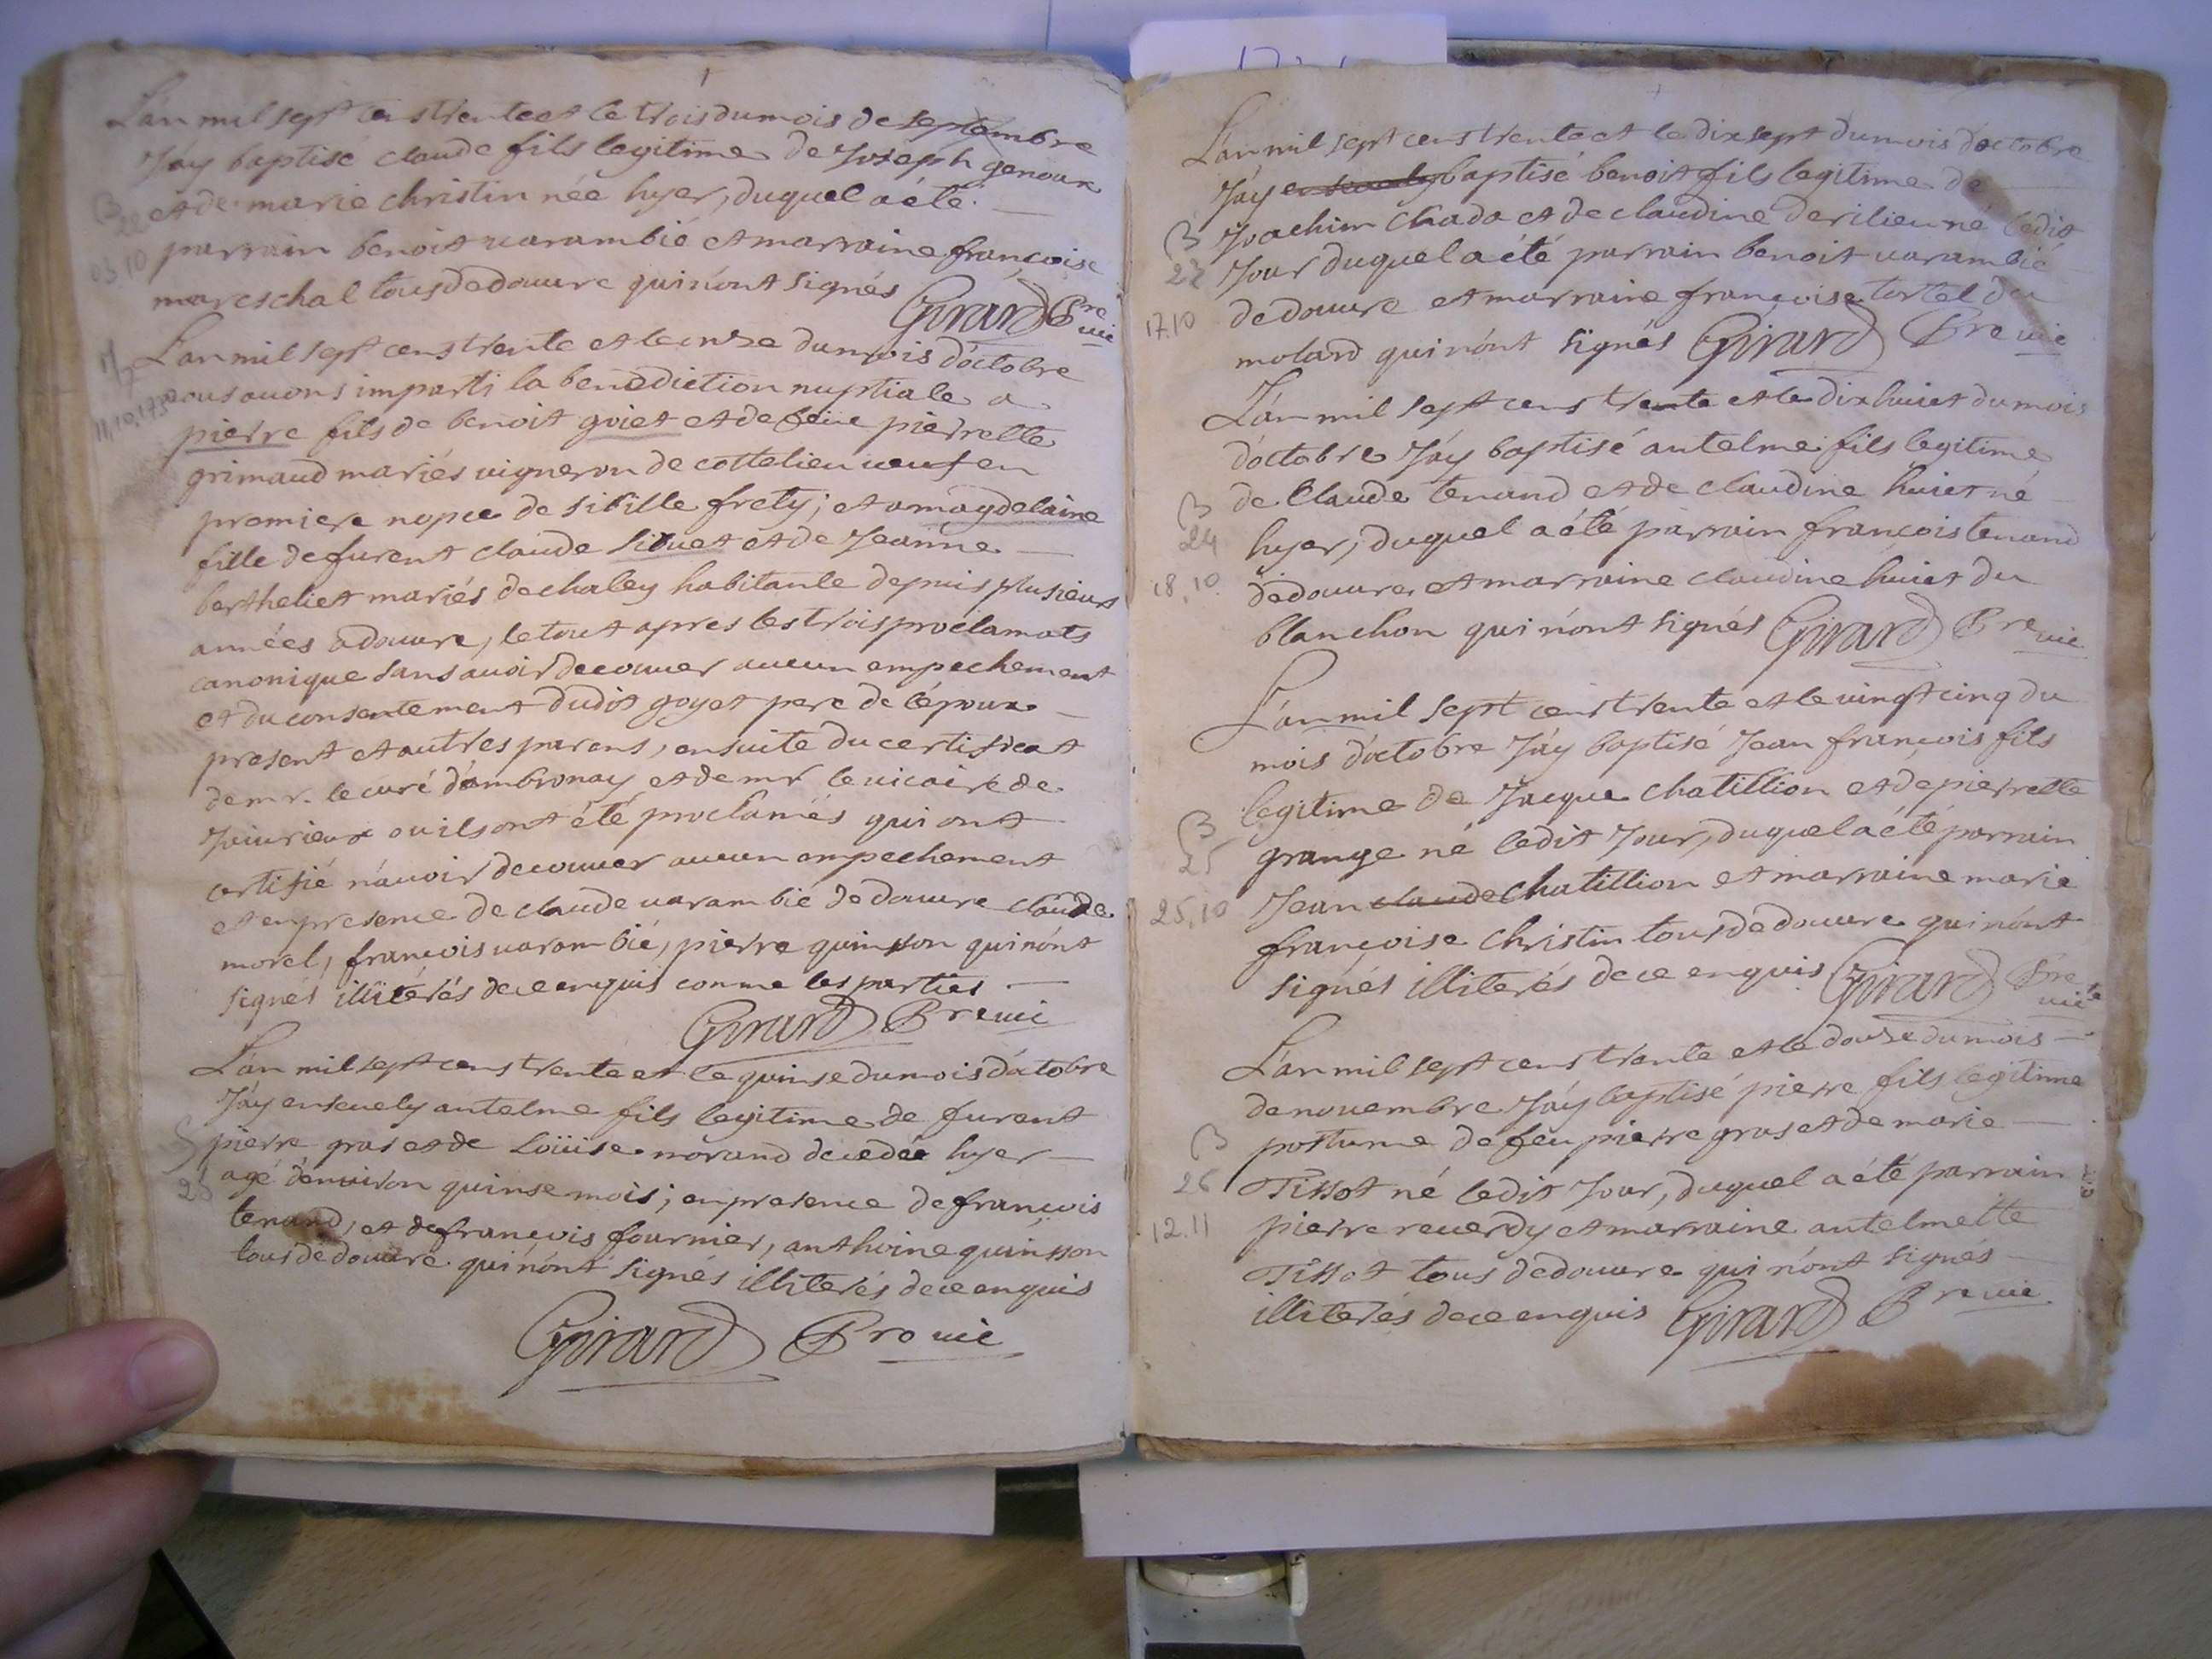 L'an mil sept cens trente et le trois du mois de septembre
J'ay baptisé claude fils legitime de Joseph genoux
et de marie christin née hyer, duquel a été
parrain benoit varambié et marraine francoise
mareschal tous dedouvre qui n'ont signés Girard Pre vic
L'an mil sept cens trente et le onze du mois d'octobre
nous avons imparti la benediction nuptiale a
pierre fils de benoit goiet et de feüe pierrette
grimaud mariés vigneron de cottelieu veuf en
premiere nopce de sibille frety; et a magdelaine
fille de furent claude sivuet et de Jeanne
bertheliet mariés de chaley habitante depuis plusieurs
années a douvre, le tout apres les trois proclamats
canonique sans avoir decouver aucun empechement
et du consentement dudit goyet pere de l'époux
present et autres parens, ensuite du certificat
de mr. le curé d'ambronay et de mr le vicaire de
Jujurieux ou ils ont été proclamés qui ont
certifié n'avoir decouver aucun empechement
et en presence de claude varambié de douvre claude
morel, francois varambié, pierre quinson qui n'ont
signés illiterés de ce enquis comme les parties
Girard Pre vic
L'an mil sept cens trente et le quinse du mois d'octobre
J'ay ensevely antelme fils legitime de furent
pierre gras et de Loüise morand decedée hyer
agé d'environ quinse mois; en presence de francois
tenand, et de francois fournier, anthoine quinson
tous de douvre qui n'ont signés illiterés de ce enquis
Girard Pre vic
B
22
03.10
11.10.1730
S
23
L'an mil sept cens trente et le dix sept du mois d'octobre
J'ay ensevely baptisé benoit fils legitime de
Joachim Chada et de claudine derilieu né ledit
Jour duquel a été parrain benoit varambié
de douvre et marraine françoise tortel du
molard qui n'ont signés Girard Pre vic
L'an mil sept cens trente et le dix huict du mois
d'octobre J'ay baptisé antelme fils legitime
de Claude tenand et de claudine huict né
hyer, duquel a été parrain francois tenand
de douvre et marraine claudine huict du
blanchon qui n'ont signés Girard Pre vic
L'an mil sept cens trente et le vingt cinq du
mois d'octobre J'ay baptisé Jean françois fils
legitime de Jacque chatillion et de pierrette
grange né ledit Jour, duquel a été parrain
Jean claude chatillion et marraine marie
françoise christin tous de douvre qui n'ont
signés illiterés de ce enquis Girard Pre vic
L'an mil sept cens trente et le douse du mois
de novembre J'ay baptisé pierre fils legitime
postume de feu pierre gras et de marie
Tissot né ledit Jour, duquel a été parrain
pierre reverdy et marraine antelmette
Tissot tous de douvre qui n'ont signés
illiterés de ce enquis Girard Pre vic
B
23
17.10
B
24
18.10
B
25
25.10
B
26
12.11